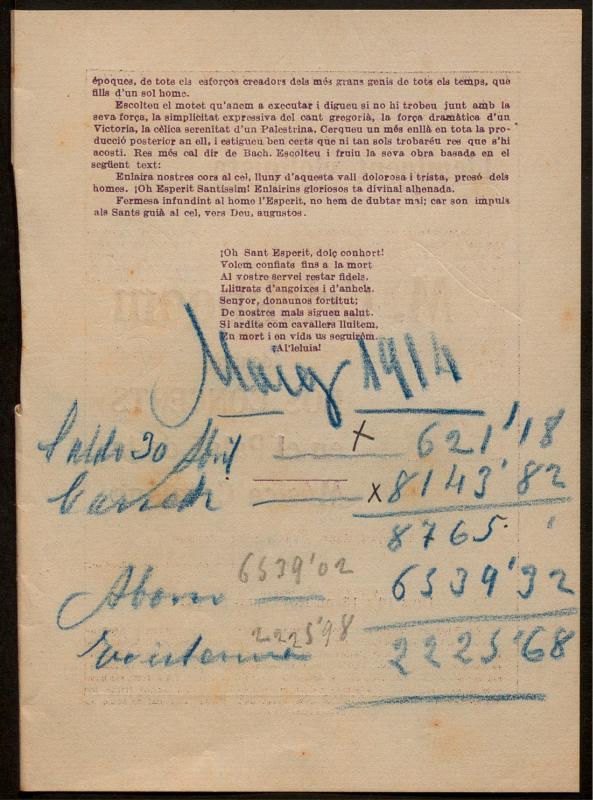 èpoques, de tots els esforços creadors dels més grans genis de tots els temps, que
fills d'un sol home.
Escolteu el motet qu'anem a executar i digueu si no hi trobeu junt amb la
seva força, la simplicitat expressiva del cant gregorià, la força dramàtica d'un
Victoria, la cèlica serenitat d'un Palestrina. Cerqueu un més enllà en tota la pro-
ducció posterior an ell, i estigueu ben certs que ni tan sols trobaréu res que s'hi
acosti. Res més cal dir de Bach. Escolteu i fruïu la seva obra basada en el
següent text:
Enlaira nostres cors al cel, lluny d'aquesta vall dolorosa i trista, presó dels
homes. ¡Oh Esperit Santíssim! Enlairins gloriosos ta divinal alhenada.
Fermesa infundint al home l'Esperit, no hem de dubtar mai; car son impuls
als Sants guià al cel, vers Deu, augustos.
¡Oh Sant Esperit, dolç conhort!
Volem confiats fins a la mort
Al vostre servei restar fidels.
Lliurats d'angoixes i d'anhels.
Senyor, donaunos fortitut;
De nostres mals sigueu salut.
Si ardits com cavallers lluitem,
En mort i en vida us seguirèm.
¡Al'leluia!
Maig 1914
Saldo 30 Abril x 621'18
x 8143'82
8765
6539'02
Abono 6539'32
2225'98
Existencia 2225'68